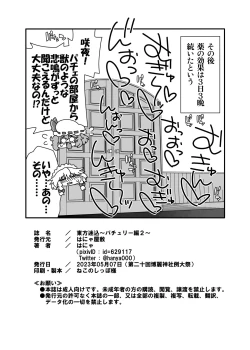 その後
薬の効果は3日3晩
続いたという
咲夜!
パチェの部屋から
獣のような
悲鳴がずっと
聞こえるんだけど
大丈夫なの!?
いや…あの…
その……
誌　名　／　東方速込～パチュリー編2～
発行元　／　はにゃ屋敷
著　者　／　はにゃ
（pixivID : id=629117
Twitter : @hanya000）
発行日　／　2023年05月07日（第二十回博麗神社例大祭）
印刷・製本　／　ねこのしっぽ様
≪お願い≫
●本誌は成人向けです、未成年者の方の購読、閲覧、譲渡を禁止します。
●発行元の許可なく本誌の一部、又は全部の複製、複写、転載、翻訳、
データ化の一切を禁止します。